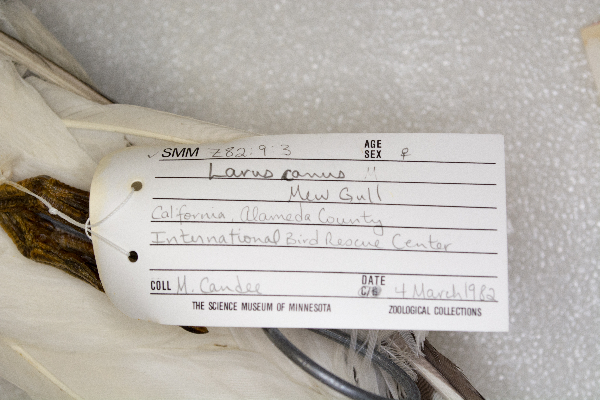 SMM Z82:9:3 AGE SEX ♀
Larus canus !!
Mew Gull
California, Alameda County
International Bird Rescue Center
COLL M. Candee DATE 4 March 1982
THE SCIENCE MUSEUM OF MINNESOTA ZOOLOGICAL COLLECTIONS